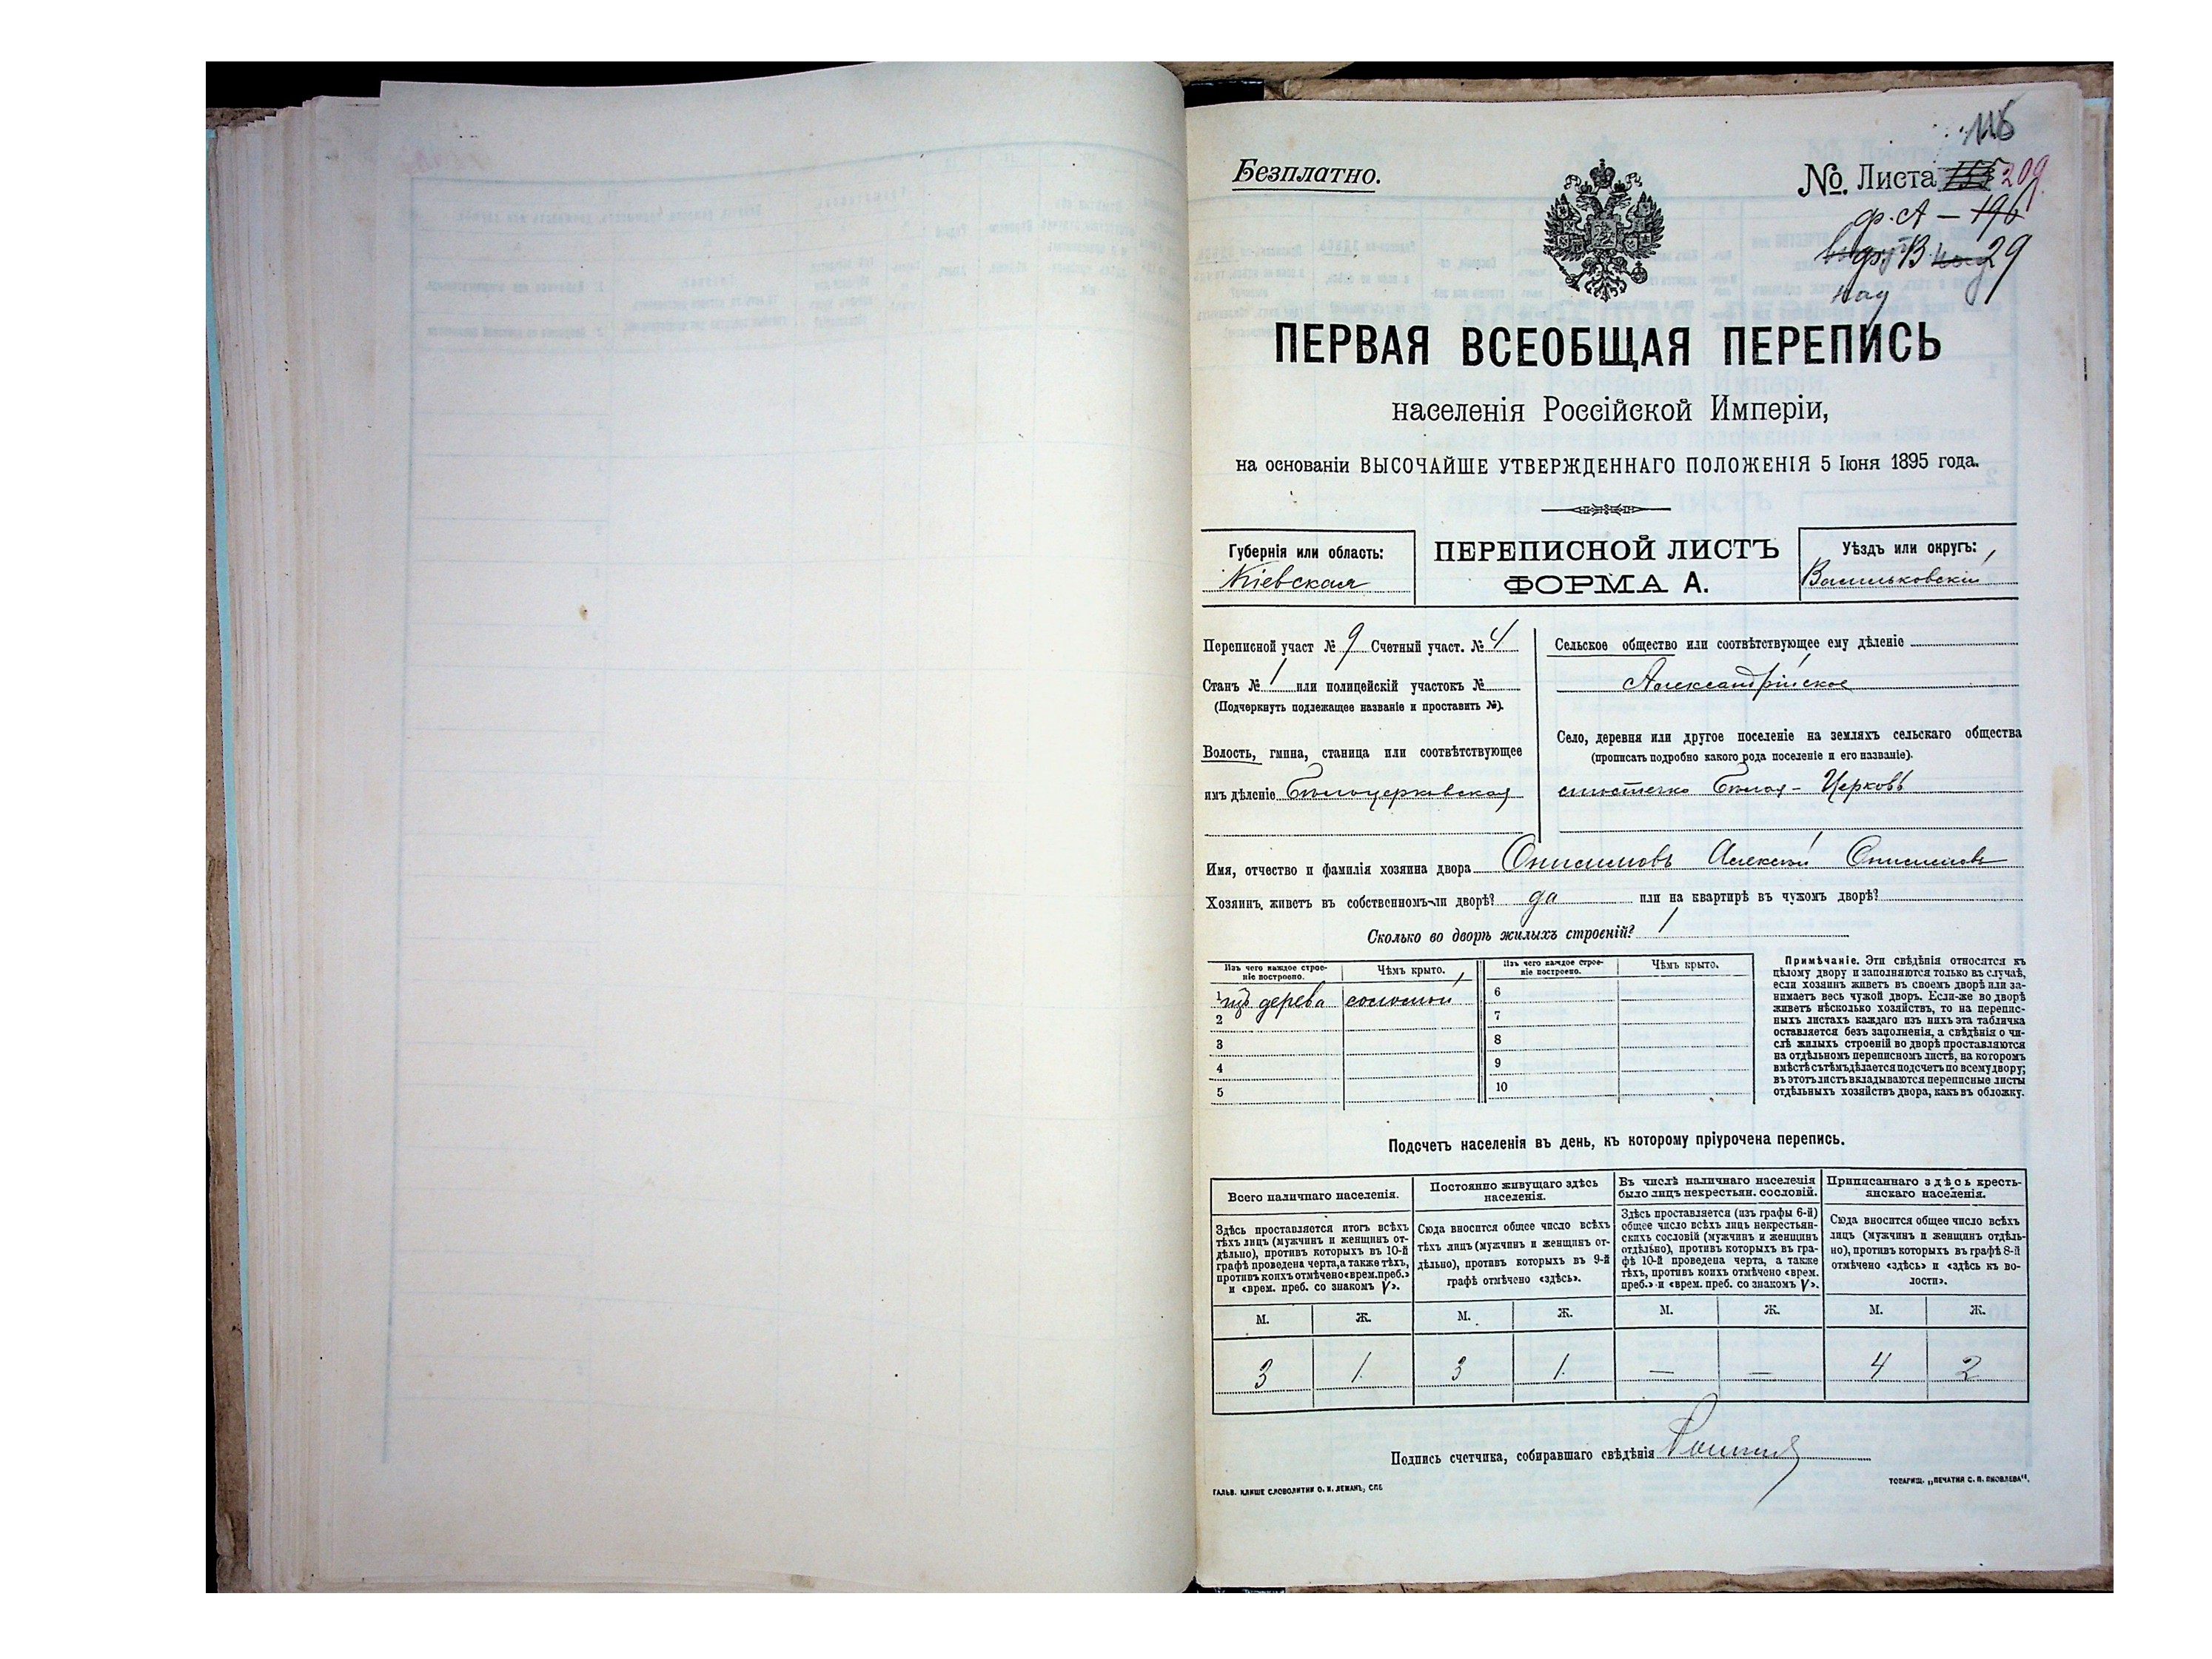 116
Безплатно.
№. Листа 209
ф. А — 196
ф. В 29
ПЕРВАЯ ВСЕОБЩАЯ ПЕРЕПИСЬ
населенія Россійской Имперіи,
на основаніи ВЫСОЧАЙШЕ УТВЕРЖДЕННАГО ПОЛОЖЕНІЯ 5 Іюня 1895 года.
Губернія или область:
Кіевская
ПЕРЕПИСНОЙ ЛИСТЪ
ФОРМА А.
Уѣздъ или округъ:
Васильковскій
Переписной участ № 9 Счетный участ. № 4
Станъ № 1 или полицейскій участокъ №
(Подчеркнуть подлежащее названіе и проставить №).
Волость, гмина, станица или соотвѣтствующее
имъ дѣленіе Бѣлоцерковская
Сельское общество или соотвѣтствующее ему дѣленіе
Александрійское
Село, деревня или другое поселеніе на земляхъ сельскаго общества
(прописать подробно какого рода поселеніе и его названіе).
мѣстечко Бѣлая-Церковь
Имя, отчество и фамилія хозяина двора Онисимовъ Алексѣй Онисимовъ
Хозяинъ живетъ въ собственномъ-ли дворѣ? да или на квартирѣ въ чужомъ дворѣ?
Сколько во дворѣ жилыхъ строеній? 1
Изъ чего каждое строе-
ніе построено.
Чѣмъ крыто.
Изъ чего каждое строе-
ніе построено.
Чѣмъ крыто.
1 изъ дерева соломой 6
2 7
3 8
4 9
5 10
Примѣчаніе. Эти свѣдѣнія относятся къ
цѣлому двору и заполняются только въ случаѣ,
если хозяинъ живетъ въ своемъ дворѣ или за-
нимаетъ весь чужой дворъ. Если-же во дворѣ
живетъ нѣсколько хозяйствъ, то на перепис-
ныхъ листахъ каждаго изъ нихъ эта табличка
оставляется безъ заполненія, а свѣдѣнія о чи-
слѣ жилыхъ строеній во дворѣ проставляются
на отдѣльномъ переписномъ листѣ, на которомъ
вмѣстѣ съ тѣмъ дѣлается подсчетъ по всему двору;
въ этотъ листъ вкладываются переписные листы
отдѣльныхъ хозяйствъ двора, какъ въ обложку.
Подсчетъ населенія въ день, къ которому пріурочена перепись.
Всего наличнаго населенія.
Здѣсь проставляется итогъ всѣхъ
тѣхъ лицъ (мужчинъ и женщинъ от-
дѣльно), противъ которыхъ въ 10-й
графѣ проведена черта, а также тѣхъ,
противъ коихъ отмѣчено «врем. преб.»
и «врем. преб. со знакомъ V».
Постоянно живущаго здѣсь
населенія.
Сюда вносится общее число всѣхъ
тѣхъ лицъ (мужчинъ и женщинъ от-
дѣльно), противъ которыхъ въ 9-й
графѣ отмѣчено «здѣсь».
Въ числѣ наличнаго населенія
было лицъ некрестьян. сословій.
Здѣсь проставляется (изъ графы 6-й)
общее число всѣхъ лицъ некрестьян-
скихъ сословій (мужчинъ и женщинъ
отдѣльно), противъ которыхъ въ гра-
фѣ 10-й проведена черта, а также
тѣхъ, противъ коихъ отмѣчено «врем.
преб.» и «врем. преб. со знакомъ V».
Приписаннаго здѣсь кресть-
янскаго населенія.
Сюда вносится общее число всѣхъ
лицъ (мужчинъ и женщинъ отдѣль-
но), противъ которыхъ въ графѣ 8-й
отмѣчено «здѣсь» и «здѣсь къ во-
лости».
М. Ж. М. Ж. М. Ж. М. Ж.
3 1 3 1 — — 4 2
Подпись счетчика, собиравшаго свѣдѣнія
ГАЛЬВ. КЛИШЕ СЛОВОЛИТНИ О. И. ЛЕМАНЪ, СПБ
ТОВАРИЩ. „ПЕЧАТНЯ С. П. ЯКОВЛЕВА“.